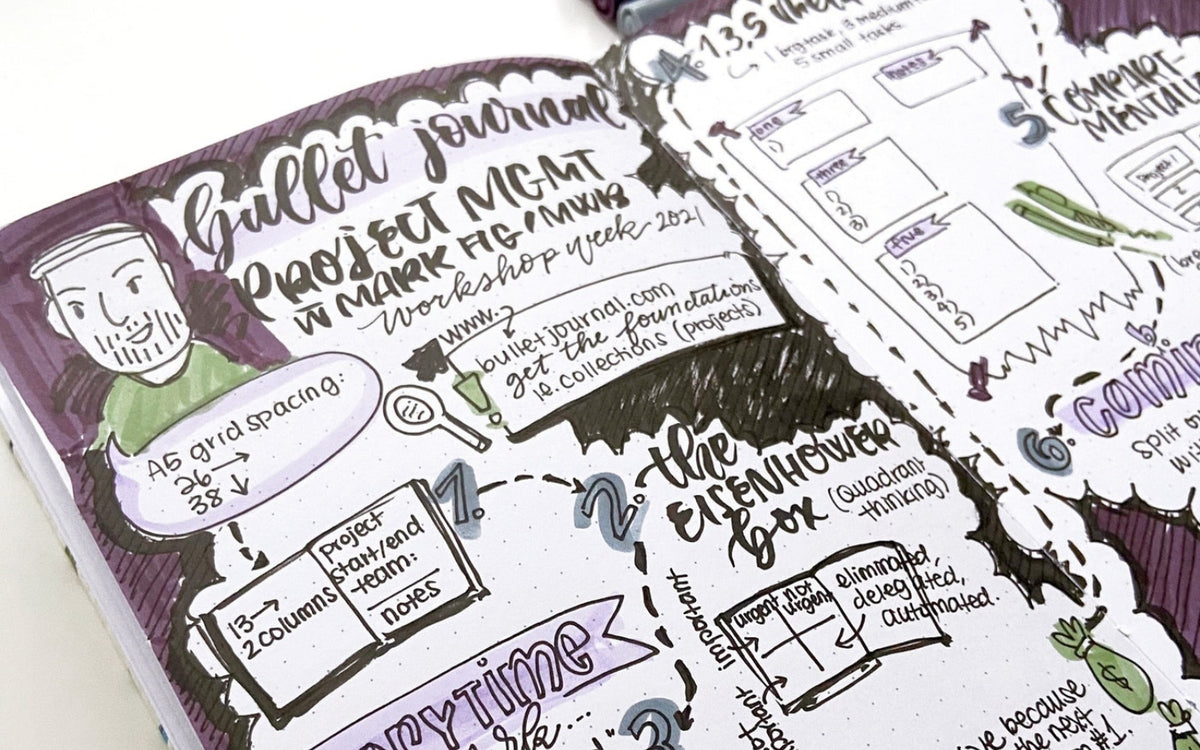 Bullet journal
PROJECT MGMT
W MARK FIG / MWKB
workshop week 2021
www.
bulletjournal.com
get the foundations
ie. collections (projects)
A5 grid spacing:
26 →
38 ↓
13 →
2 columns
project
start/end
team:
notes
1.
2. the
EISENHOWER
box (quadrant
thinking)
urgent
not
urgent
important
eliminated,
delegated,
automated.
3
because
the next
#1.
4. 1, 3, 5
1 big task, 3 medium
5 small tasks
notes
one
1)
three
1)
2)
3)
five
1)
2)
3)
4)
5)
5. COMPART-
project 1
6.
split